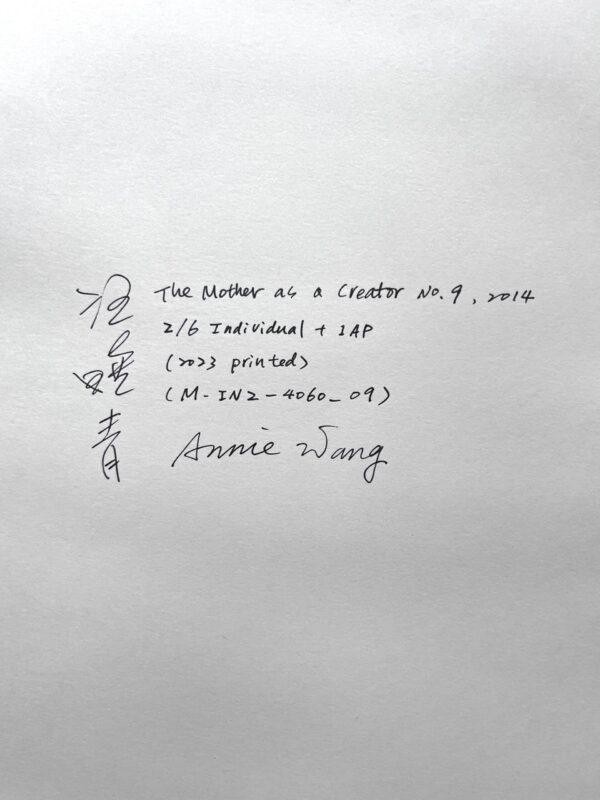 汪曉青
The Mother as a Creator No.9, 2014
2/6 Individual + 1AP
(2023 printed)
(M-IN2-4060_09)
Annie Wang